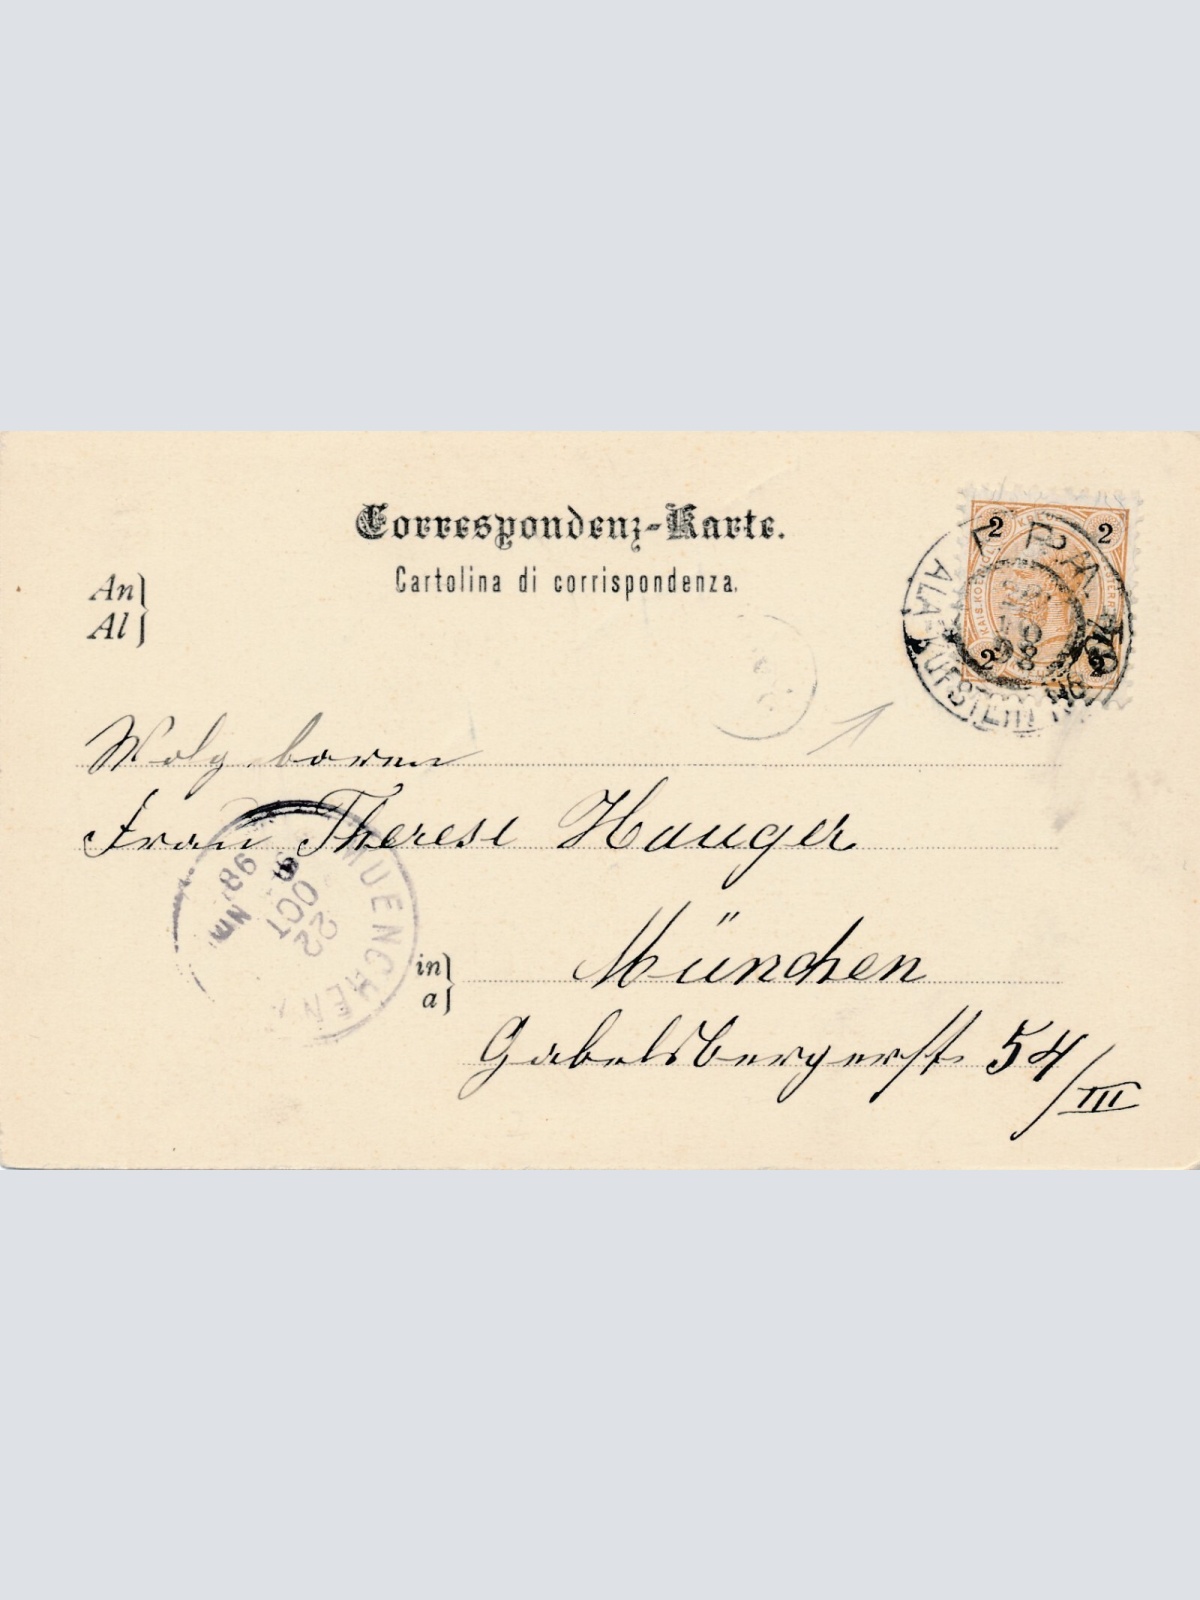 Correspondenz-Karte.
Cartolina di corrispondenza.
An
Al
2 2
2 2
ALA-KUFSTEIN
98
Wolgeboren
Frau Therese Hauger
MUENCHEN
22
OCT
98
in
a
München
Gabelsbergerst 54/III